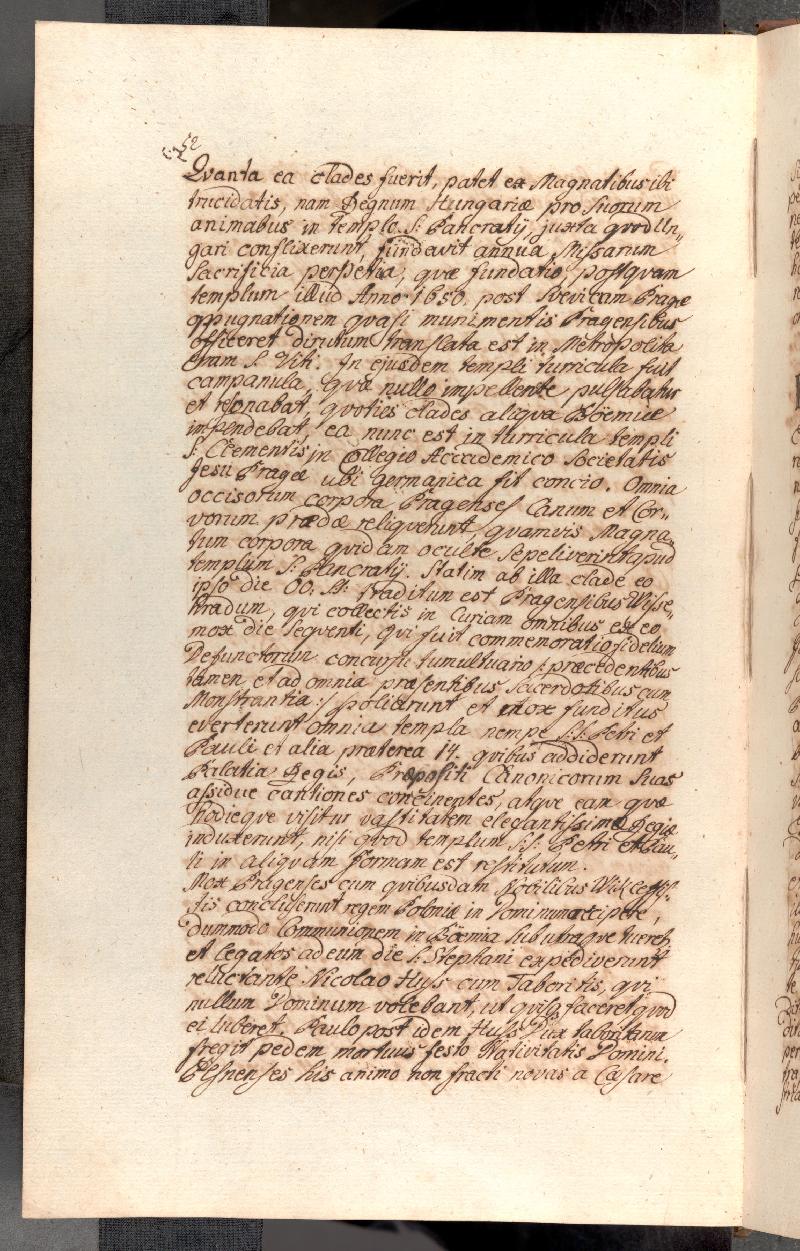 52
Qvanta ea clades fuerit, patet ex Magnatibus ibi
trucidatis, nam Regnum Hungariæ pro suorum
animabus in templo S: Pancratij, juxta qvod Un„
gari conflixerunt, fundavit annua Missarum
Sacrificia perpetua, quæ fundatio, postqvam
templum illud Anno 1650 post Svevicam Pragæ
oppugnationem qvasi munimentis Pragensibus
officeret dirutum translata est in Metropolita
nam S. Viti. In ejusdem templi turricula fuit
campanula, qvæ nullo impellente pulsabatur
et resonabat, qvoties clades aliqva Böemiæ
impendebat, ea nunc est in turricula templi
S: Clementis in Collegio Accademico Societatis
Jesu Pragæ ubi germanica fit concio. Omnia
occisorum corpora Pragenses Canum et Cor„
vorum prædæ reliqverunt, qvamvis Magna„
tum corpora qvidam oculte sepeliverint apud
templum S. Pancratij. Statim ab illa clade eo
ipso die OO. SS. traditum est Pragensibus Wisse„
hradum, qui collectis in Curiam omnibus ex eo
mox die seqventi, qui fuit commemoratio fidelium
Defunctorum concursu tumultuario /: præcedentibus
tamen et ad omnia præsentibus Sacerdotibus cum
Monstrantia :/ poliarunt et mox funditus
everterunt omnia templa nempe S:S. Petri et
Pauli et alia præterea 14. qvibus addiderunt
Palatia Regis, Præpositi Canonicorum suas
assidue cantiones concinentes, atqve eam qvæ
hodieqve visitur vastitatem elegantissimæ Regiæ
induxerunt, nisi qvod templum S:S. Petri et Pau„
li in aliqvam formam est restitutum.
Mox Pragenses cum qvibusdam Nobilibus
concluserunt regem Poloniæ in Dominum accipere,
dummodo Communionem in Böemia sub utraqve
et legatos ad eum die S: Stephani expediverunt
reluctante Nicolao Huss cum Taboritis, qvi
nullum Dominum volebant, ut qvisq faceret qvod
ei luberet. Paulo post idem Huss Dux taboritarum
fregit pedem mortuus festo Nativitatis Domini.
Plsnenses his animo non fracti novas a Cæsare